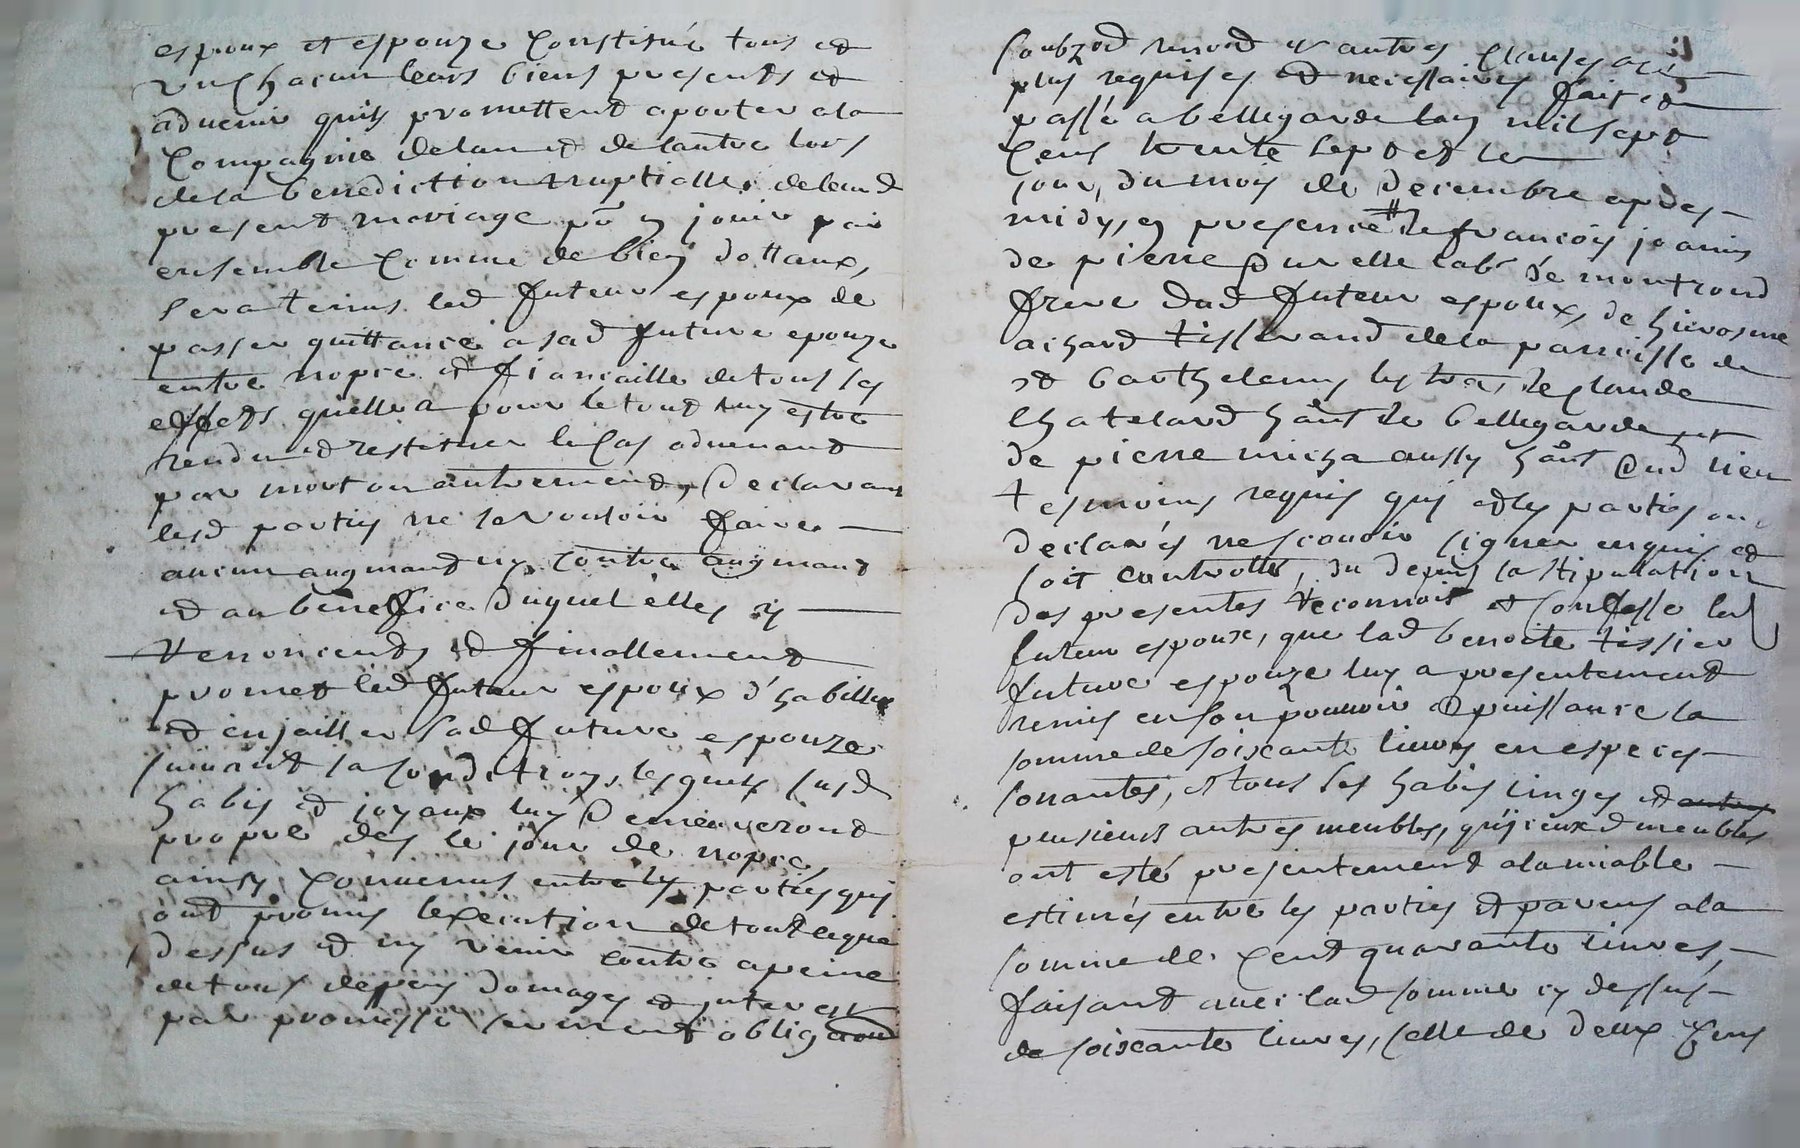 espoux et espouze Constitué tous et
un Chacun leurs biens presents et
advenir quils promettent aporter a la
Compagnie de lun et de lautre lors
de la benediction nuptialle de leurd
present mariage po~ en jouir par
ensemble Comme de bien dottaux,
sera tenus led futeur espoux de
passer quittance a sad future epouze
entre nopce et fiancaille de tous les
effets quelle a pour le tout luy estre
rendu et restituer le Cas advenant
par mort ou autrement, Declarant
lesd parties ne se vouloir faire
aucun augmand ny contre augmand
et au beneffice duquel elles y
renoncents et finallement
promet led futeur espoux d'habiller
et enjailler sad future espouze
suivant sa condition, lesquels susd
habis et joyaux luy Demeureront
propre des le jour de nopce,
ainsy Convenus entre les parties qui
ont promis lexecution de tout ce que
dessus et ny venir contre a peine
de tous depens domages et interest
par promesse serment obligaon
soubz renon et autres Clauses a ce
plus requises et necessaires fait et
passé a bellegarde lan mil sept
Cens trente sept et le
jour, du mois de Decembre apres
midy, en presence # de francois joanin
de pierre sur elle labr de montrond
frere dud futeur espoux, de hierosme
achard tisserand de la parroisse de
st barthelemy les tras, de claude
Chatelard hant de bellegarde et
de pierre micha aussy hant aud lieu
tesmoins requis qui et les parties ont
declarés ne scavoir signer enquis et
soit controllé, du depuis la stipulation
des presentes reconnoit et Confesse led
futeur espoux, que lad benoite tissier
future espouze luy a presentement
remis en son pouvoir et puissance la
somme de soixante livres en especes
sonantes, et tous ses habis linges et autres
plusieurs autres meubles, quiceux d meubles
ont esté presentement a lamiable
estimés entre les parties et parens a la
somme de Cent quarante livres,
faisant avec lad somme cy dessus
de soixante livres, Celle de deux Cens